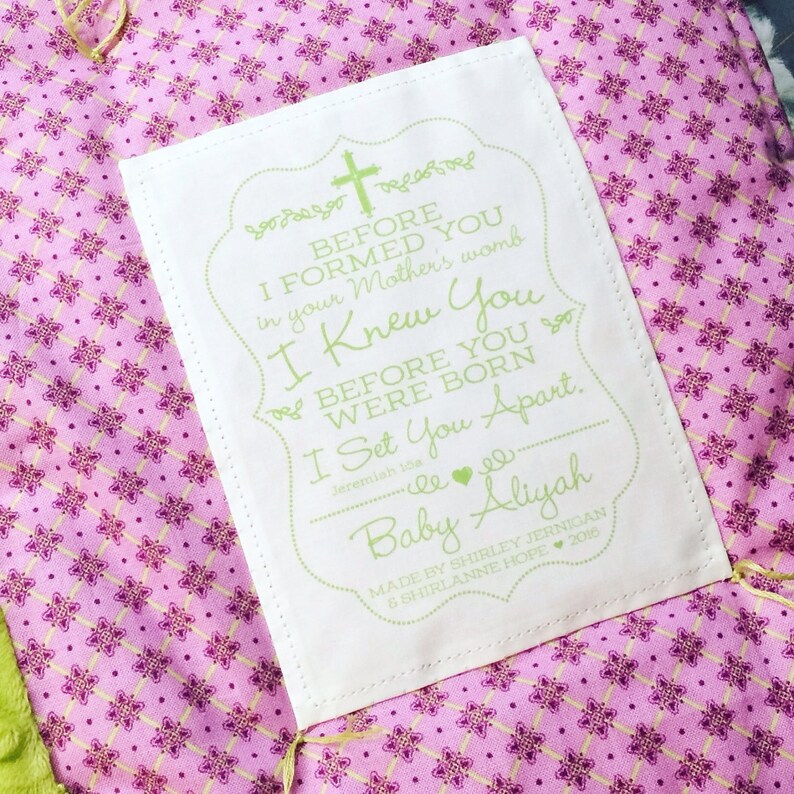 BEFORE
I FORMED YOU
in your Mother's womb
I Knew You
BEFORE YOU
WERE BORN
I Set You Apart.
Jeremiah 1:5a
Baby Aliyah
MADE BY SHIRLEY JERNIGAN
& SHIRLANNE HOPE ♥ 2016